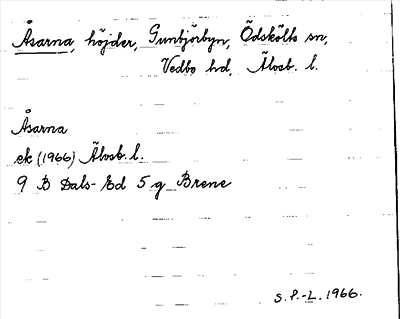 Åsarna, höjder, Guntjörbyn, Ödskölts sn,
Vedbo hd, Älvsb. l.
Åsarna
ek (1966) Älvsb. l.
9 B Dals-Ed 5 g Brene
S. P.-L. 1966.